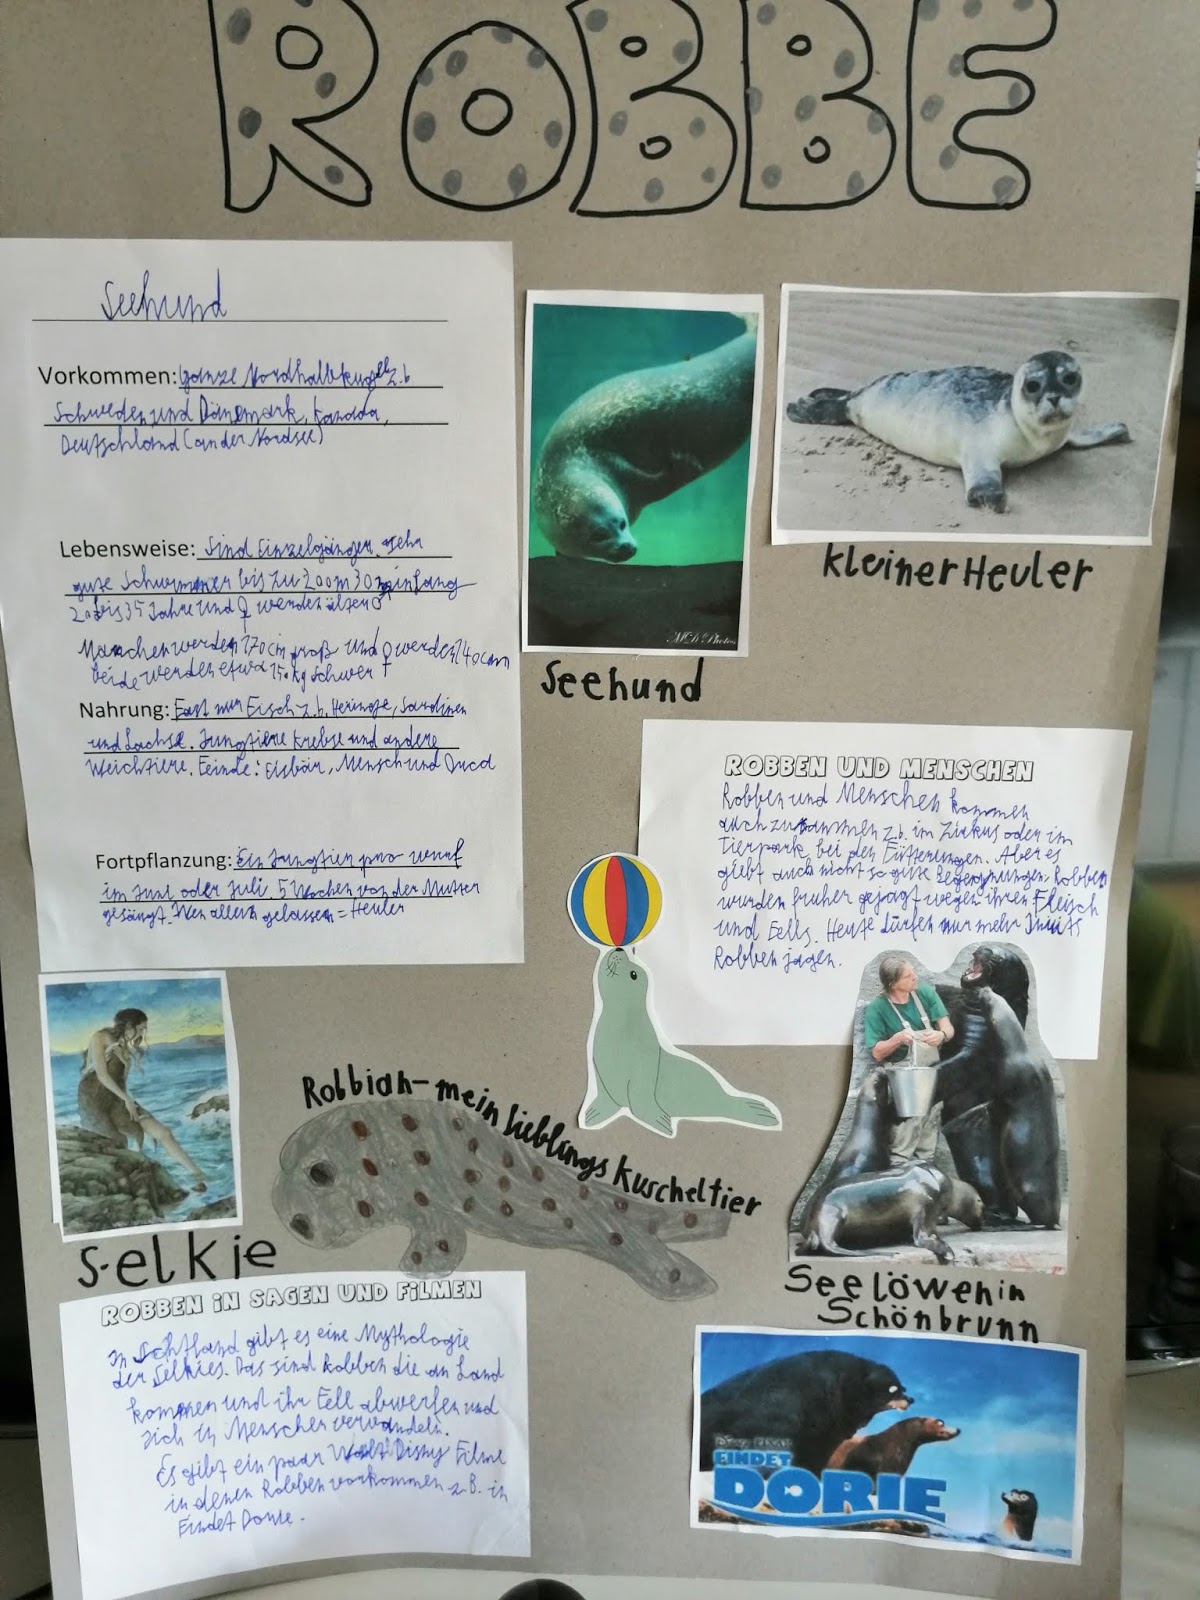 ROBBE
Seehund
Vorkommen: Ganze Nordhalbkugel z.b
Schweden und Dänemark, Kanada,
Deutschland (an der Nordsee)
Lebensweise: Sind Einzelgänger. Sehr
gute Schwimmer bis zu 200m 30min lang
20 bis 35 Jahre und ♀ werden älter ♂
Mänchen werden 170cm groß und ♀ werden 140cm
beide werden etwa kg schwer
Nahrung: Fast nur Fisch z.b. Heringe, Sardinen
und Lachse. Jungtiere Krebse und andere
Weichtiere. Feinde: Eisbär, Mensch und
Fortpflanzung: Ein Jungtier pro wurf
im Juni oder Juli. 5 Wochen von der Mutter
gesängt. Wen allein gelassen = Heuler
MD Photos
Seehund
kleiner Heuler
ROBBEN UND MENSCHEN
Robben und Menschen kommen
auch zusammen z.b. im Zirkus oder im
Tierpark bei den Fütterungen. Aber es
giebt auch nicht so gute Begegnungen. Robben
wurden früher gejagt wegen ihren Fleisch
und Fells. Heute dürfen nur mehr Inuits
Robben jagen.
Robbiah- mein lieblings Kuscheltier
Selkie
Seelöwen in
Schönbrunn
ROBBEN IN SAGEN UND FILMEN
In Schtland gibt es eine Mythologie
der Selkies. Das sind Robben die an Land
kommen und ihr Fell abwerfen und
sich in Menschen verwandeln.
Es gibt ein paar Walt Disny Filme
in denen Robben vorkommen z.B. in
Findet Dorie.
DISNEY PIXAR
FINDET
DORIE